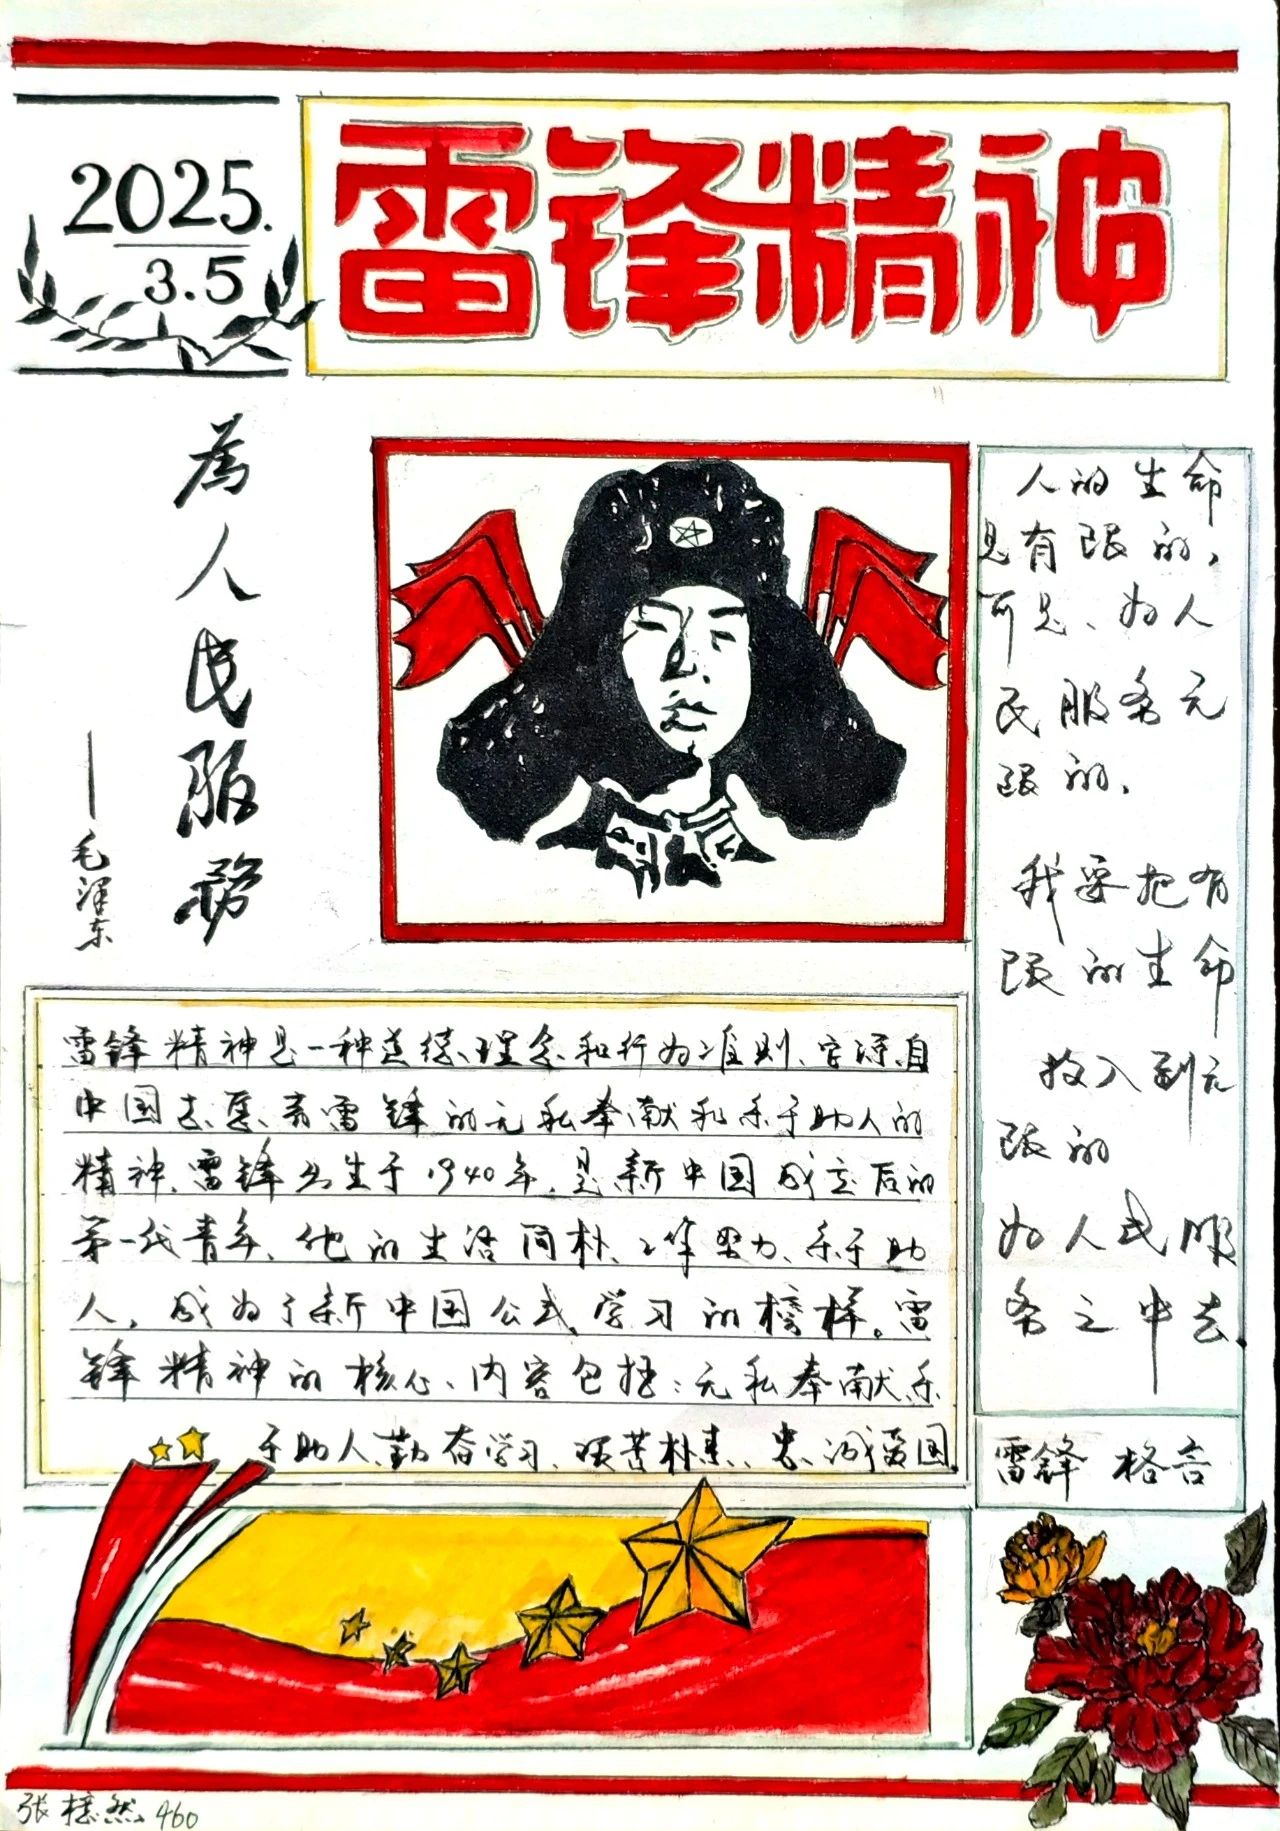 2025.
3.5
雷锋精神
為
人
民
服
務
——毛泽东
人的生命
是有限的,
可是、为人
民服务无
限的.
我要把有
限的生命
投入到无
限的
为人民服
务之中去.
雷锋 格言
雷锋精神是一种道德理念和行为准则、它源自
中国志愿者雷锋的无私奉献和乐于助人的
精神.雷锋出生于1940年.是新中国成立后的
第一代青年、他的生活简朴、工作努力、乐于助
人,成为了新中国公民学习的榜样。雷
锋精神的核心、内容包括:无私奉献乐
于助人、勤奋学习、艰苦朴素、忠诚爱国.
460